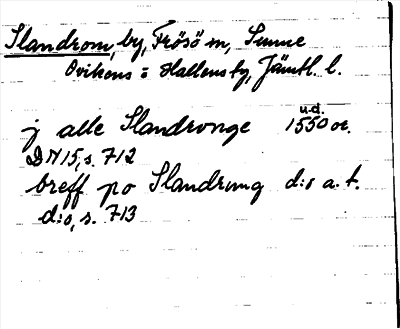 Slandrom, by, Frösö sn, Sunne
Ovikens o Hallens tg, Jämtl. l.
j alle Slandronge u.d. 1550 or.
DN 15, s. 712
breff po Slandrung d:o a. t.
d:o, s. 713